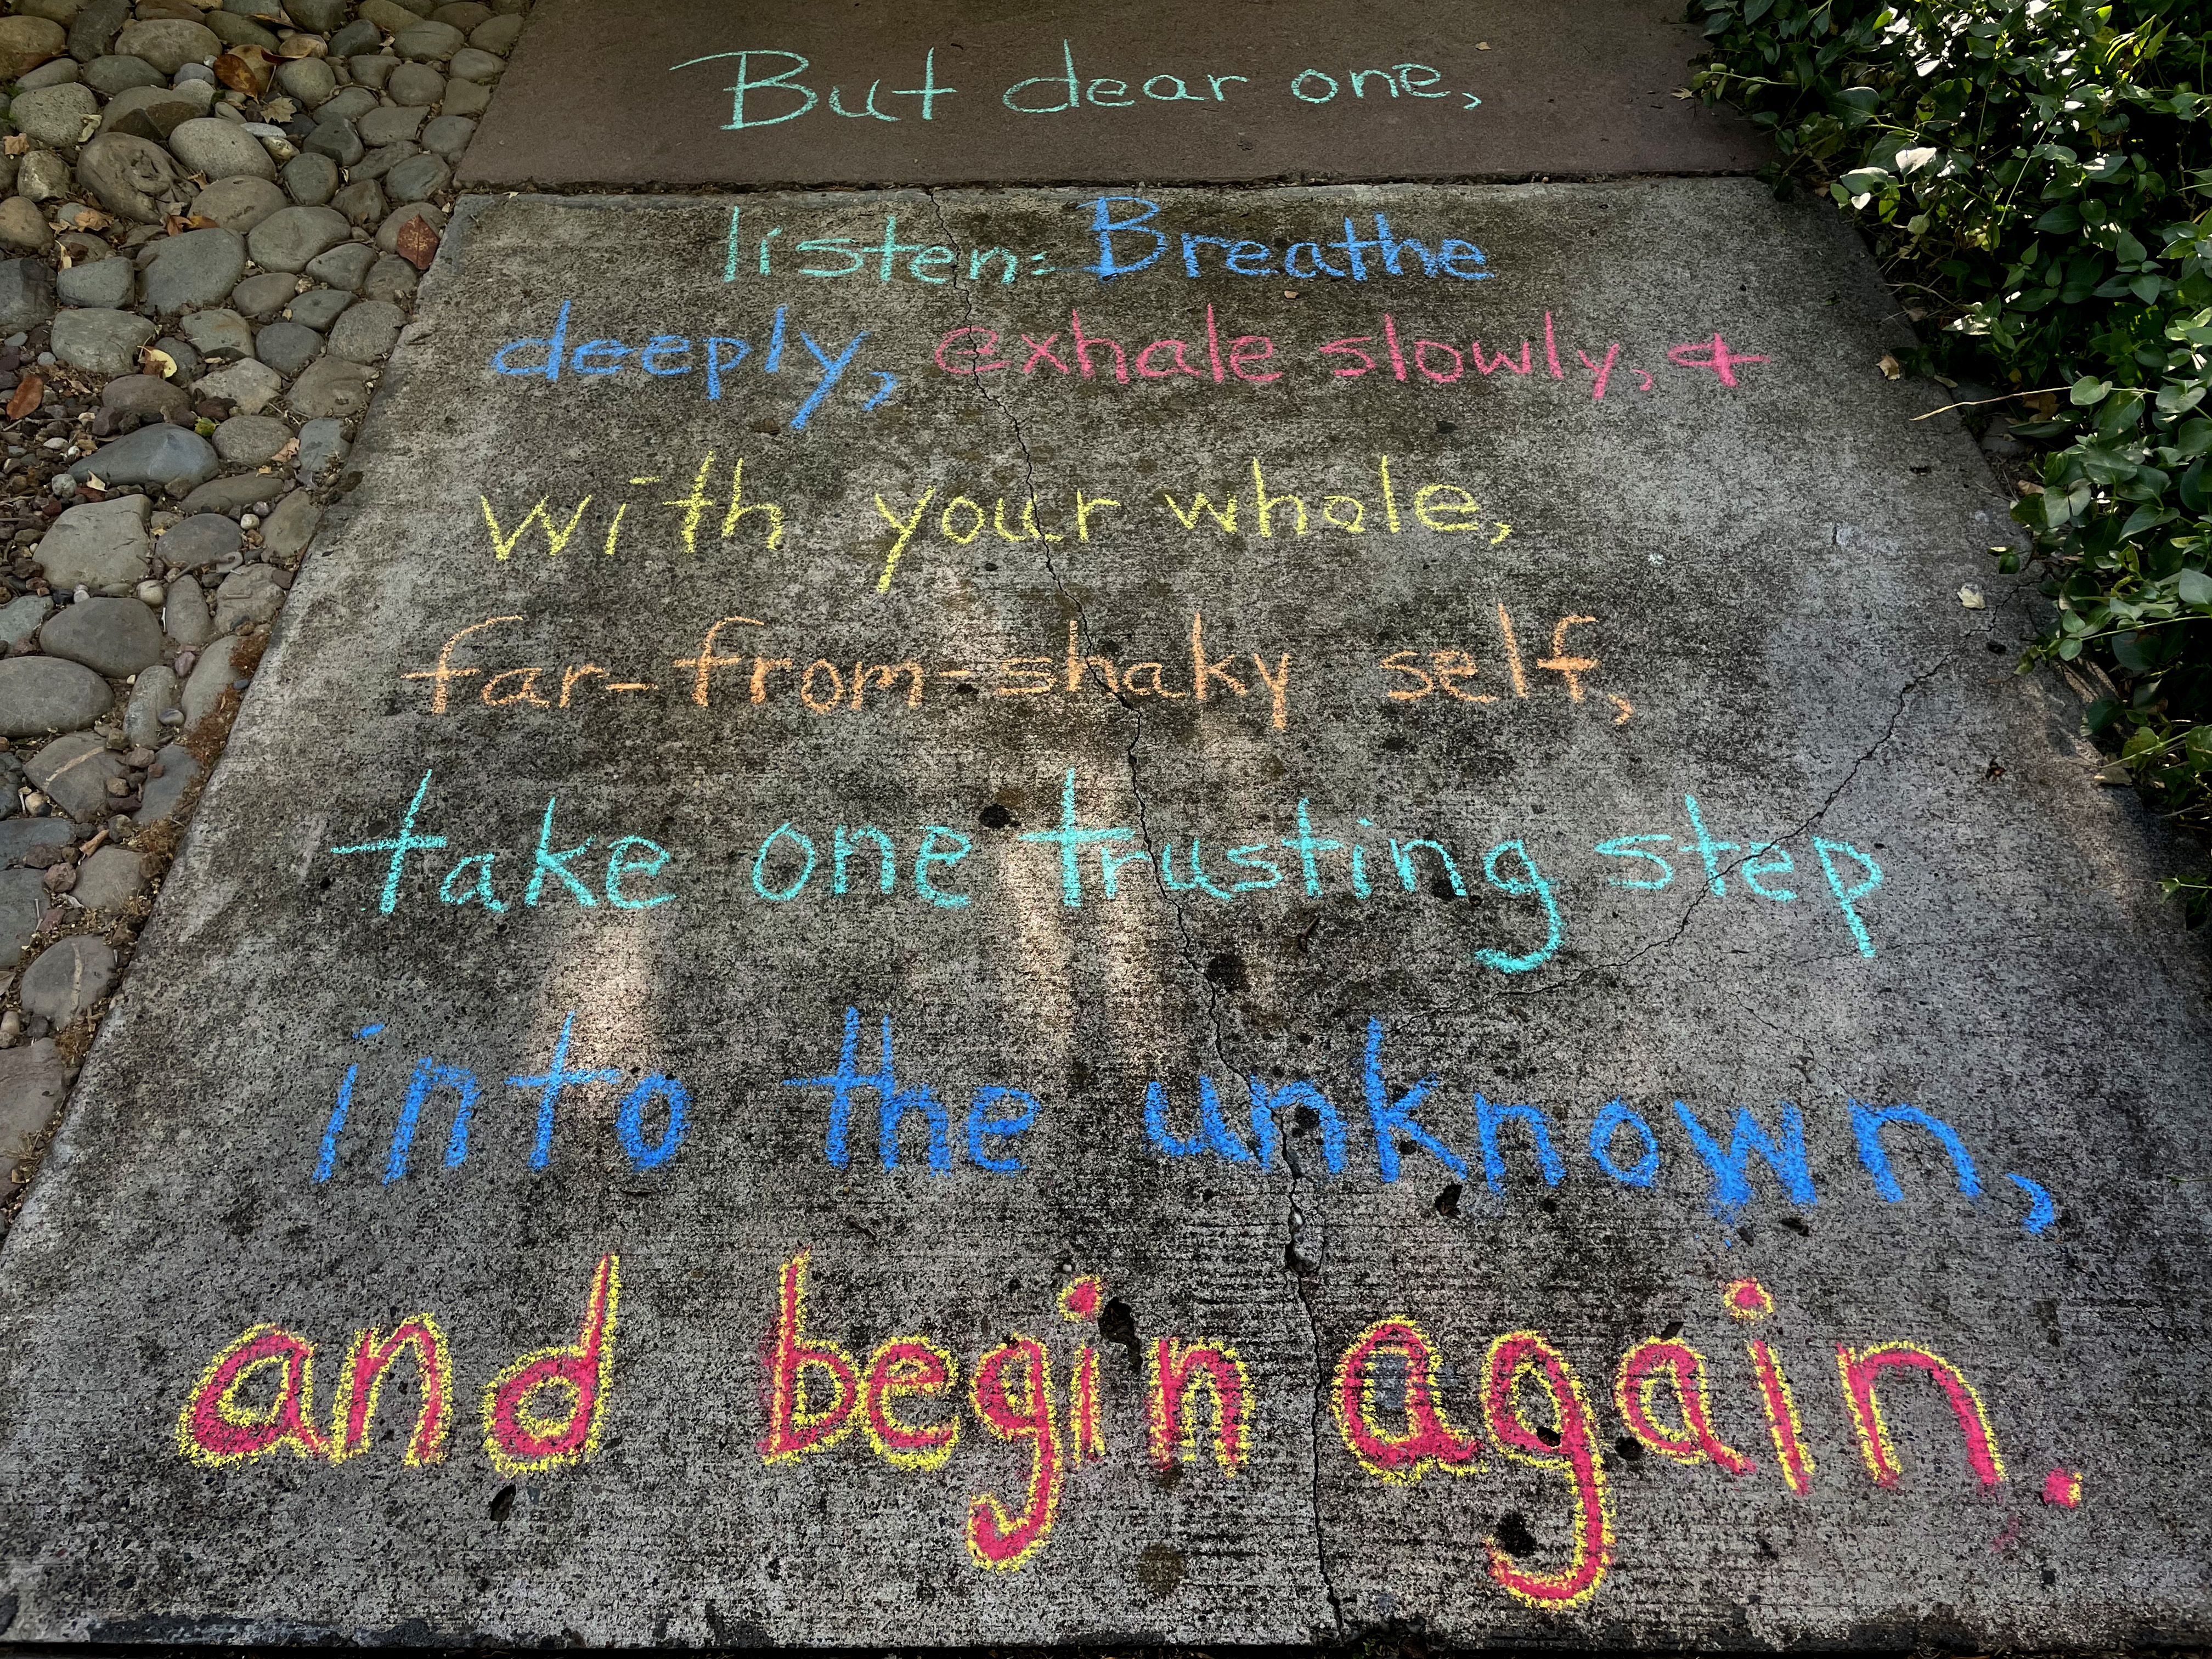 But dear one,
listen: Breathe
deeply, exhale slowly, &
with your whole,
far-from-shaky self,
take one trusting step
into the unknown,
and begin again.